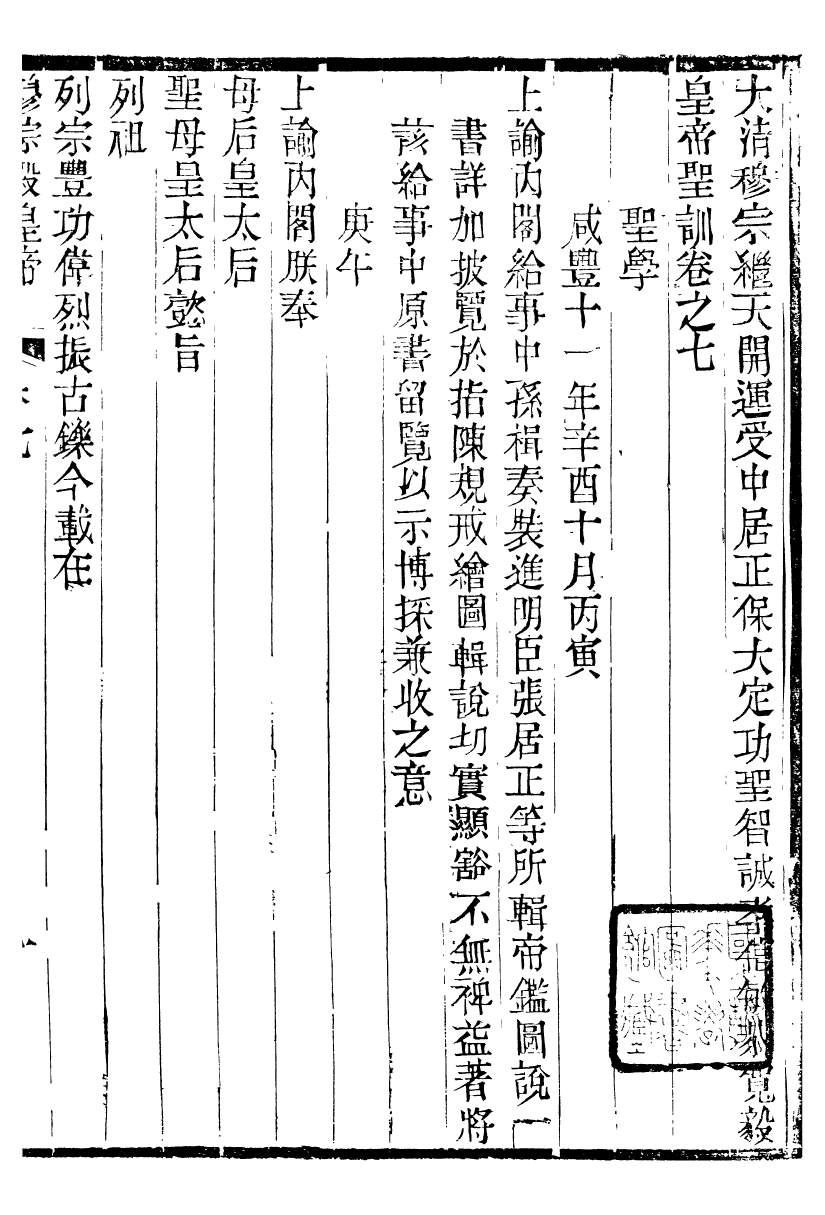 大清穆宗繼天開運受中居正保大定功聖智誠孝信敏恭寬毅
皇帝聖訓卷之七
聖學
咸豐十一年辛酉十月丙寅
上諭內閣給事中孫楫奏裝進明臣張居正等所輯帝鑑圖說一
書詳加披覽於指陳規戒繪圖輯說切實顯豁不無裨益著將
該給事中原書留覽以示博採兼收之意
庚午
上諭內閣朕奉
母后皇太后
聖母皇太后懿旨
列祖
列宗豐功偉烈振古鑠今載在
穆宗毅皇帝